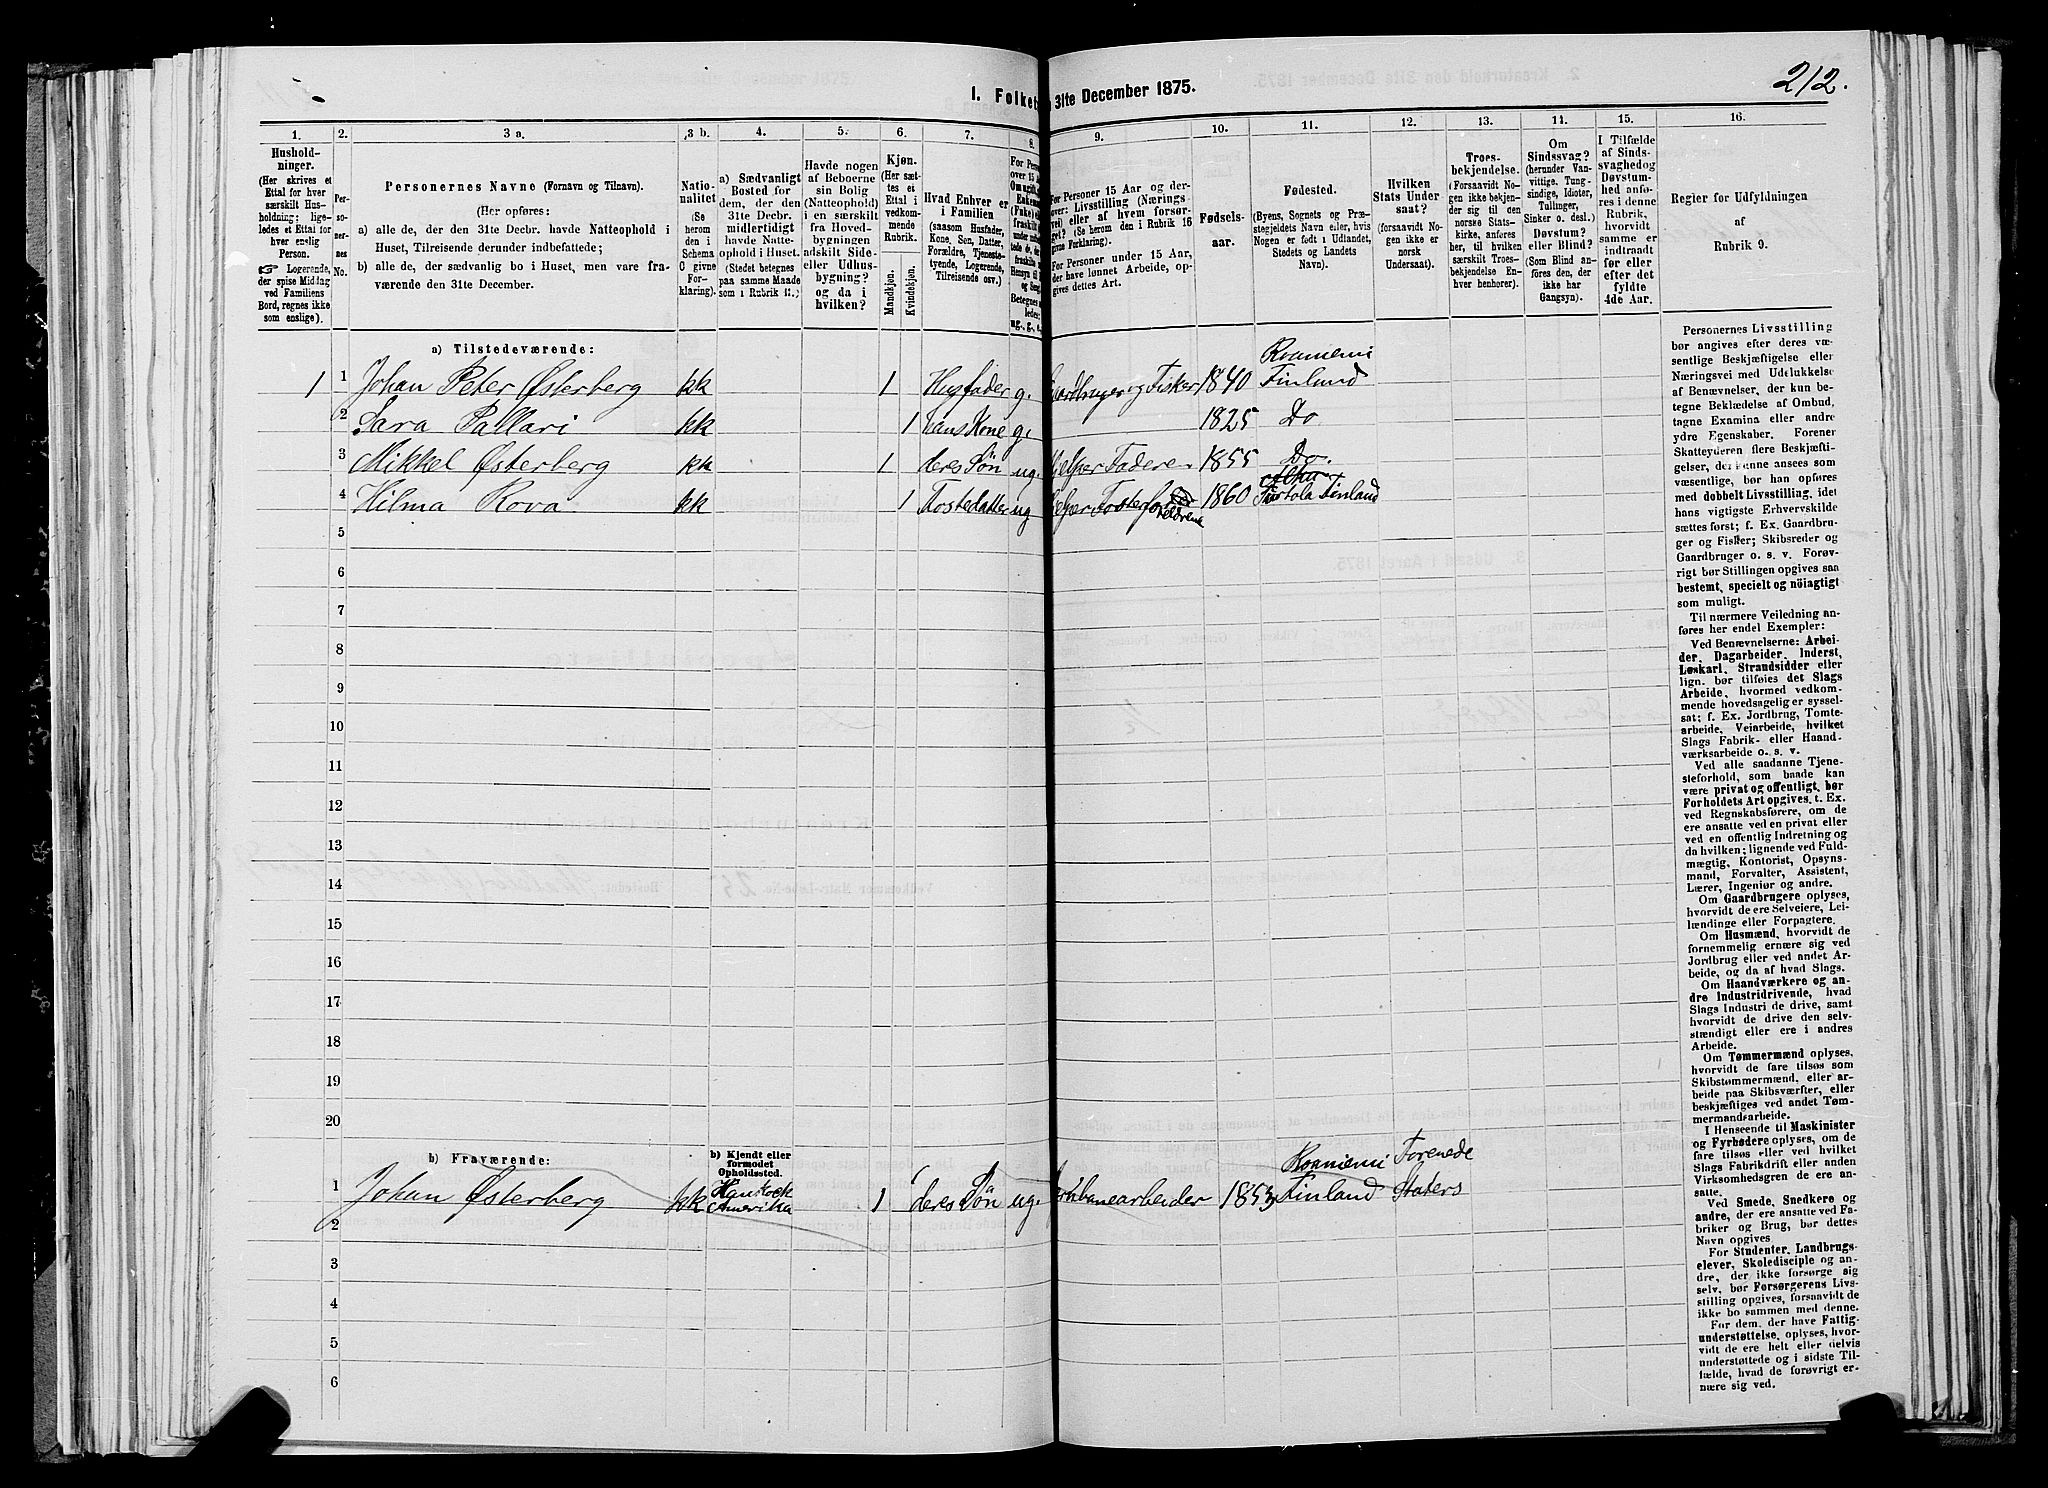 212.
I. Folket
31te December 1875.
1. 2. 3 a. 3 b. 4. 5. 6. 7. 8. 9. 10. 11. 12. 13. 14. 15. 16.
Hushold-
ninger.
(Her skrives et
Ettal for hver
særskilt Hus-
holdning; lige-
ledes et Ettal for
hver enslig
Person.
☞ Logerende,
der spise Middag
ved Familiens
Bord, regnes ikke
som enslige).
Per-
so-
ner-
nes
No.
Personernes Navne (Fornavn og Tilnavn).
(Her opføres:
a) alle de, der den 31te Decbr. havde Natteophold i
Huset, Tilreisende derunder indbefattede;
b) alle de, der sædvanlig bo i Huset, men vare fra-
værende den 31te December.
Natio-
nalitet
(Se
herom
den i
Schema
C givne
For-
klaring).
a) Sædvanligt
Bosted for
dem, der den
31te Decbr.
midlertidigt
havde Natte-
ophold i Huset.
(Stedet betegnes
paa samme Maade
som i Rubrik 11.)
Havde nogen
af Beboerne
sin Bolig
(Natteophold)
i en særskilt
fra Hoved-
bygningen
adskilt Side-
eller Udhus-
bygning?
og da i
hvilken?
Kjøn.
(Her sæt-
tes et
Ettal i
vedkom-
mende
Rubrik.
Mandkjøn.
Kvindekjøn.
Hvad Enhver er
i Familien
(saasom Husfader,
Kone, Søn, Datter,
Forældre, Tjeneste-
tyende, Logerende,
Tilreisende osv.)
For Personer 15 Aar og der-
over: Livsstilling (Nærings
vei) eller af hvem forsør-
get? (Se herom de i Rubrik 16
givne Forklaring).
For Personer under 15 Aar,
der have lønnet Arbeide, op-
gives dettes Art.
Fødsels-
aar.
Fødested.
(Byens, Sognets og Præ-
stegjeldets Navn eller, hvis
Nogen er født i Udlandet,
Stedets og Landets
Navn).
Hvilken
Stats Under
saat?
(forsaavidt No-
gen ikke er
norsk
Undersaat).
Troes-
bekjendelse.
(Forsaavidt No-
gen ikke bekjen-
der sig til den
norske Stats-
kirke, anføres
her, til hvilken
særskilt Troes-
bekjendelse En-
hver henhører).
Om
Sindssvag?
(herunder Van-
vittige, Tung-
sindige, Idioter,
Tullinger,
Sinker o. desl.)
Døvstum?
eller Blind?
(Som Blind an-
føres den, der
ikke har
Gangsyn).
I Tilfælde
af Sinds-
svaghed og
Døvstum-
hed anfø-
res i denne
Rubrik,
hvorvidt
samme er
indtraadt
før eller
efter det
fyldte
4de Aar.
Regler for Udfyldningen
af
Rubrik 9.
a) Tilstedeværende:
1 1 Johan Peter Østerberg kk 1 Husfader g. Gaardbruger og Fisker 1840 Finland
2 Sara Pallari kk 1 hans Kone g. 1825 Do
3 Mikkel Østerberg kk 1 deres Søn ug. hjelper Faderen 1855 Do.
4 Hilma Rova kk 1 Fosterdatter ug 1860 Turtola Finland
5
6
7
8
9
10
11
12
13
14
15
16
17
18
19
20
b) Fraværende:
b) Kjendt eller
formodet
Opholdssted.
Forenede
1 Johan Østerberg kk Hankock Amerika 1 deres Søn ug. Grubearbeider 1853 Finland Staters
2
3
4
5
6
Personernes Livsstilling
bør angives efter deres væ-
sentlige Beskjæftigelse eller
Næringsvei med Udelukkelse
af Benævnelser, der kun be-
tegne Beklædelse af Ombud,
tagne Examina eller andre
ydre Egenskaber. Forener
Skatteyderen flere Beskjæfti-
gelser, der kunne ansees som
væsentlige, bør han opføres
med dobbelt Livsstilling, idet
hans vigtigste Erhvervskilde
sættes først; f. Ex. Gaardbru-
ger og Fisker; Skibsreder og
Gaardbruger o. s. v. Forøv-
rigt bør Stillingen opgives saa
bestemt, specielt og nöiagtigt
som muligt.
Til nærmere Veiledning an-
føres her endel Exempler:
Ved Benævnelserne: Arbei-
der, Dagarbeider, Inderst,
Løskarl, Strandsidder eller
lign. bør tilføies det Slags
Arbeide, hvormed vedkom-
mende hovedsagelig er syssel-
sat; f. Ex. Jordbrug, Tomte-
arbeide, Veiarbeide, hvilket
Slags Fabrik- eller Haand-
værksarbeide o. s. v.
Ved alle saadanne Tjene-
steforhold, som baade kan
være privat og offentligt, bør
Forholdets Art opgives, t. Ex.
ved Regnskabsførere, om de
ere ansatte ved en privat eller
ved en offentlig Indretning og
da hvilken; lignende ved Fuld-
mægtig, Kontorist, Opsyns-
mand, Forvalter, Assistent,
Lærer, Ingeniør og andre.
Om Gaardbrugere oplyses,
hvorvidt de ere Selveiere, Lei-
lændinge eller Forpagtere.
Om Husmænd, hvorvidt de
fornemmelig ernære sig ved
Jordbrug eller ved andet Ar-
beide, og da af hvad Slags.
Om Haandværkere og an-
dre Industridrivende, hvad
Slags Industri de drive, samt
hvorvidt de drive den selv-
stændigt eller ere i andres
Arbeide.
Om Tømmermænd oplyses,
hvorvidt de fare tilsøs som
Skibstømmermænd, eller ar-
beide paa Skibsværfter, eller
beskjæftiges ved andet Tøm-
mermandsarbeide.
I Henseende til Maskinister
og Fyrbødere oplyses, om de
fare tilsøs eller ved hvilket
Slags Fabrikdrift eller anden
Virksomhedsgren de ere an-
satte.
Ved Smede, Snedkere og
andre, der ere ansatte ved Fa-
briker og Brug, bør dettes
Navn opgives
For Studenter, Landbrugs-
elever, Skoledisciple og an-
dre, der ikke forsørge sig
selv, bør Forsørgerens Livs-
stilling opgives, forsaavidt de
ikke bo sammen med denne.
For dem, der have Fattig-
understøttelse, oplyses, hvor-
vidt de ere helt eller delvis
understøttede og i sidste Til-
fælde, hvad de forøvrigt er-
nære sig ved.